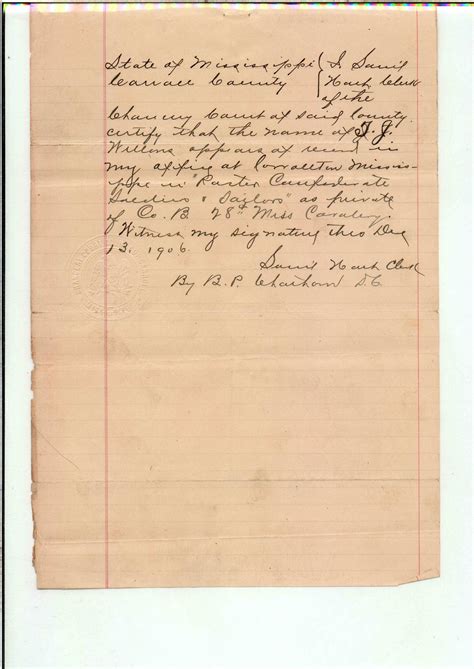 State of Mississippi { I Sam'l
Carroll County { Hart Clerk
of the
Chancery Court of said County
certify that the name of J. J.
Wilsons appears of record in
my office at Carrollton Missis-
sippi in "Roster Confederate
Soldiers & Sailors" as private
of Co. B. 28th Miss Cavalry.
Witness my signature this Dec
13. 1906.
Sam'l Hart Clerk
By B. P. D.C.